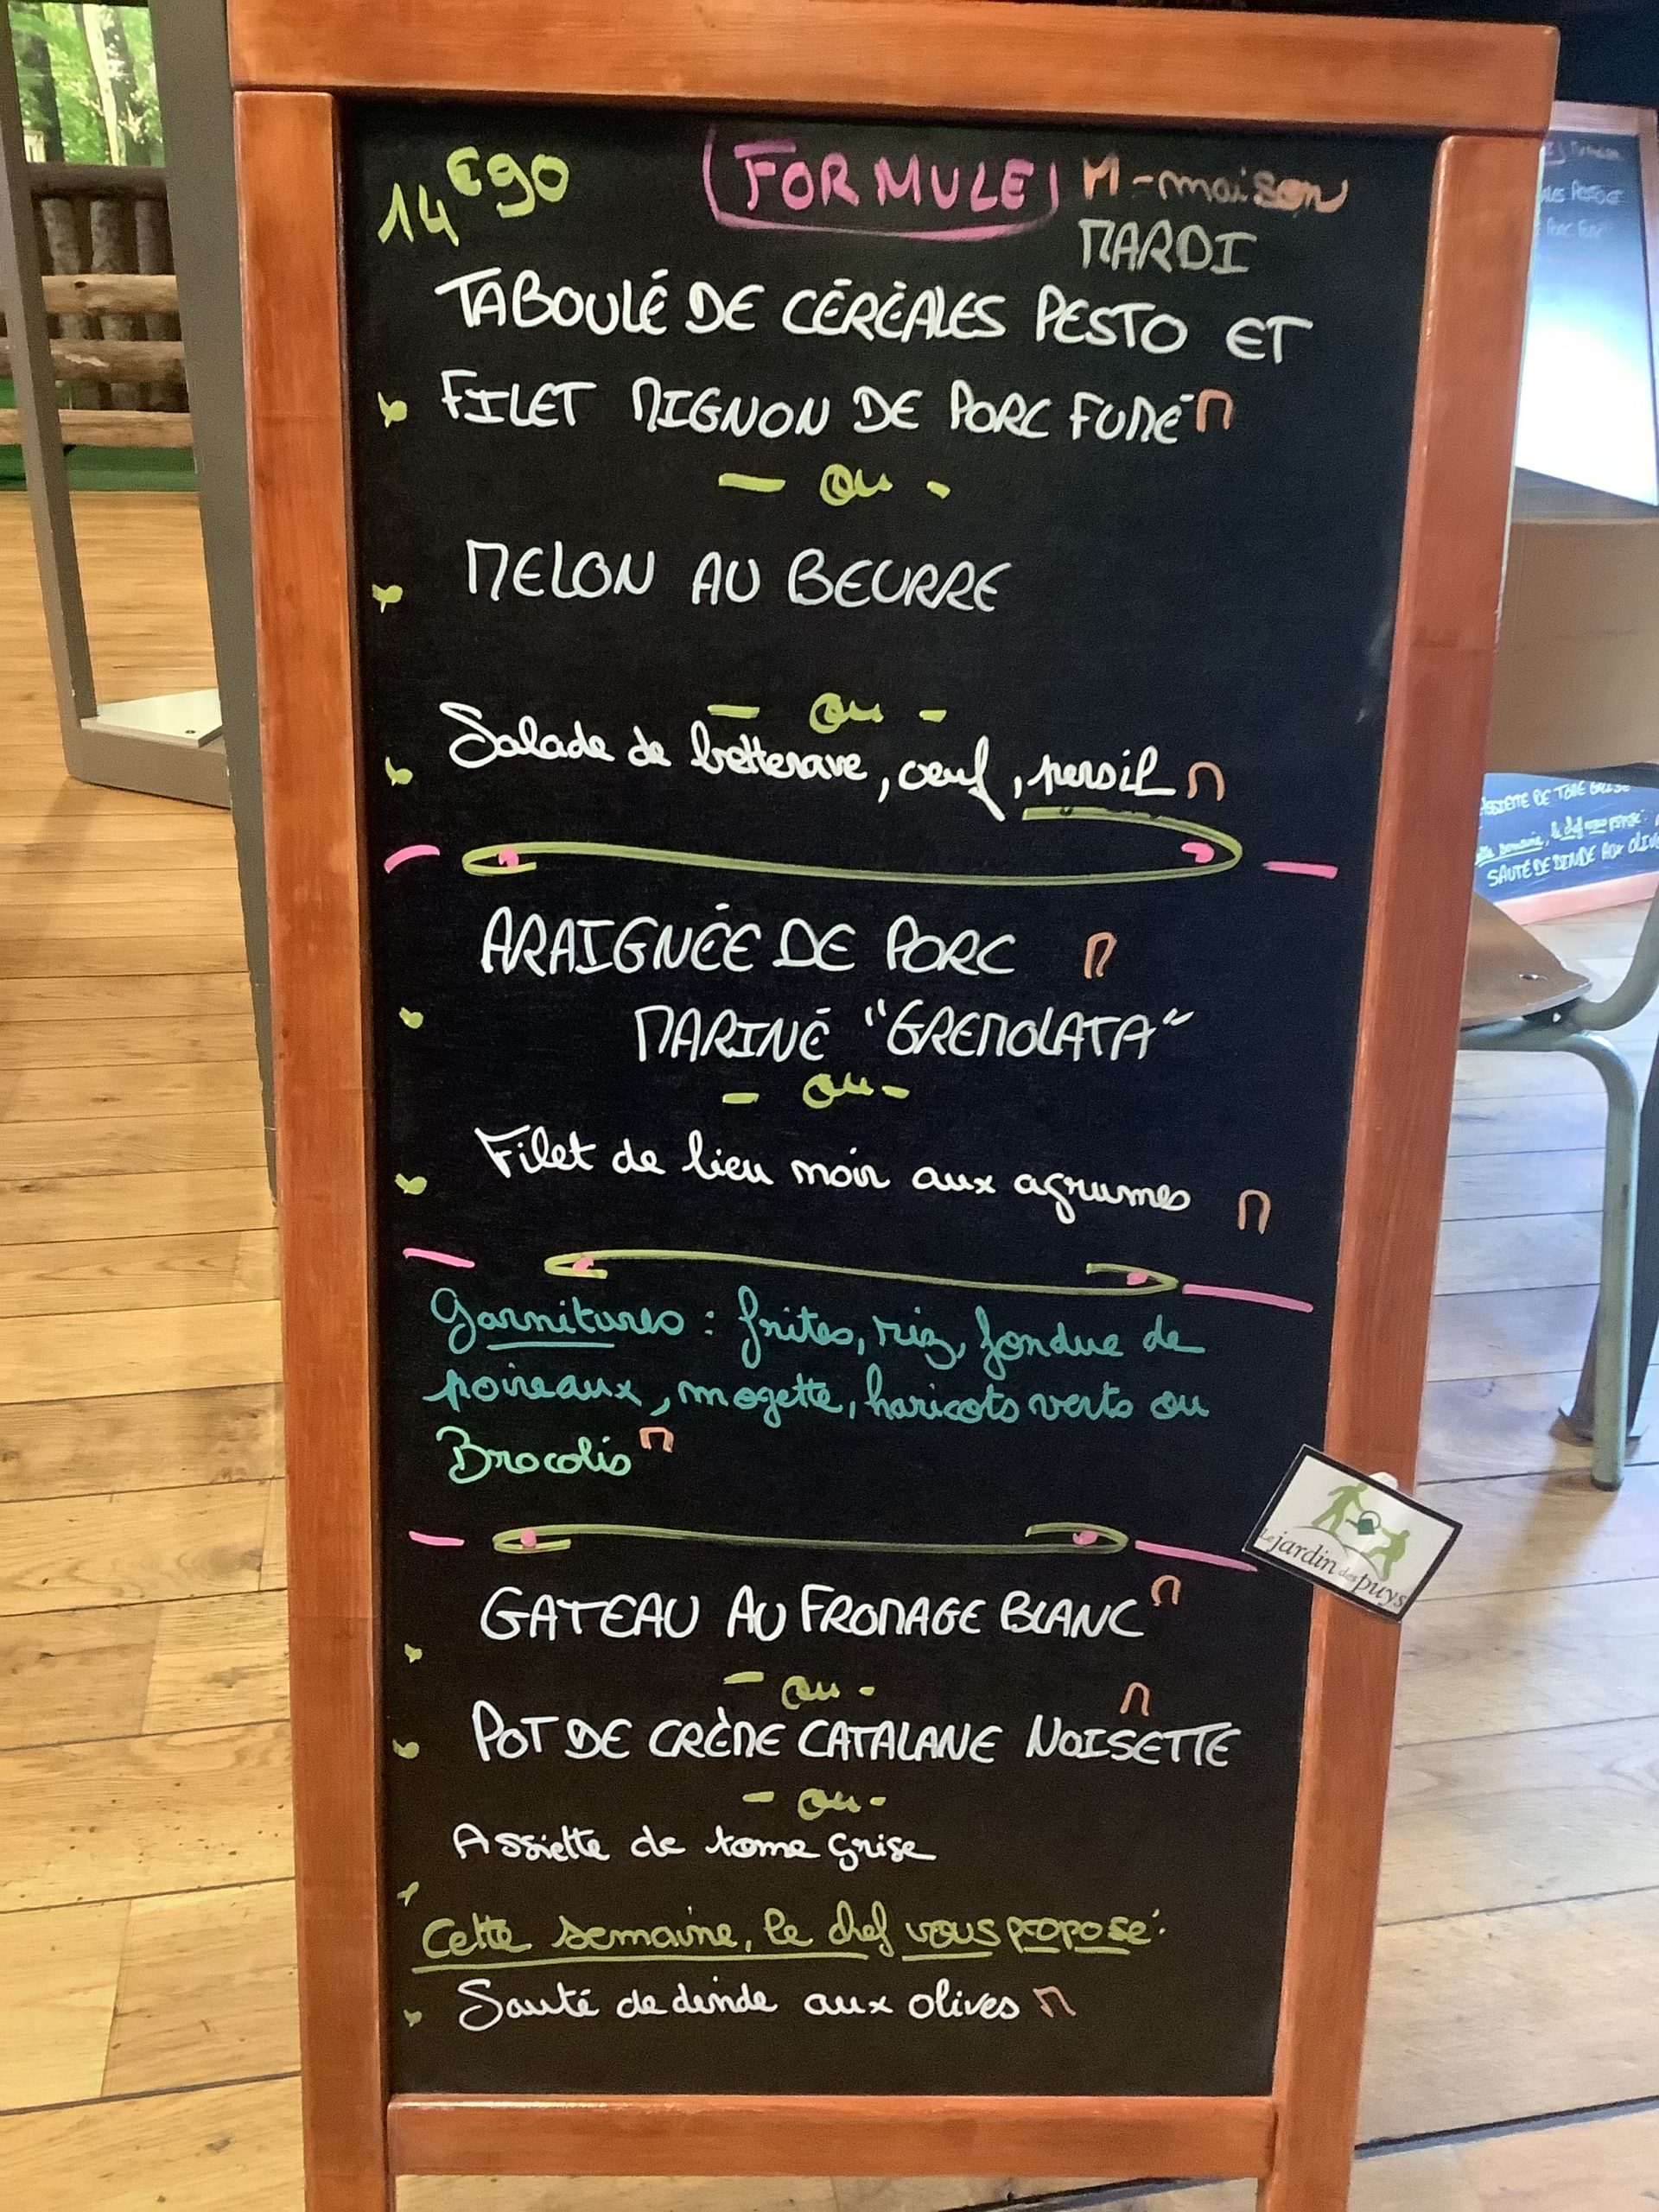 14€90 FORMULE M-maison
MARDI
TABOULÉ DE CÉRÉALES PESTO ET
FILET MIGNON DE PORC FUMÉ M
- ou -
MELON AU BEURRE
- ou -
Salade de betterave, oeuf, persil M
ARAIGNÉE DE PORC M
MARINÉ "GREMOLATA"
- ou -
Filet de lieu noir aux agrumes M
Garnitures : frites, riz, fondue de
poireaux, mogette, haricots verts ou
Brocolis M
GATEAU AU FROMAGE BLANC M
- ou -
M
POT DE CRÈME CATALANE NOISETTE
- ou -
Assiette de tome grise
Cette semaine, le chef vous propose :
Sauté de dinde aux olives M
Le jardin des puys
ASSIETTE DE TOME GRISE
semaine, le chef vous propose :
SAUTÉ DE DINDE AUX OLIV